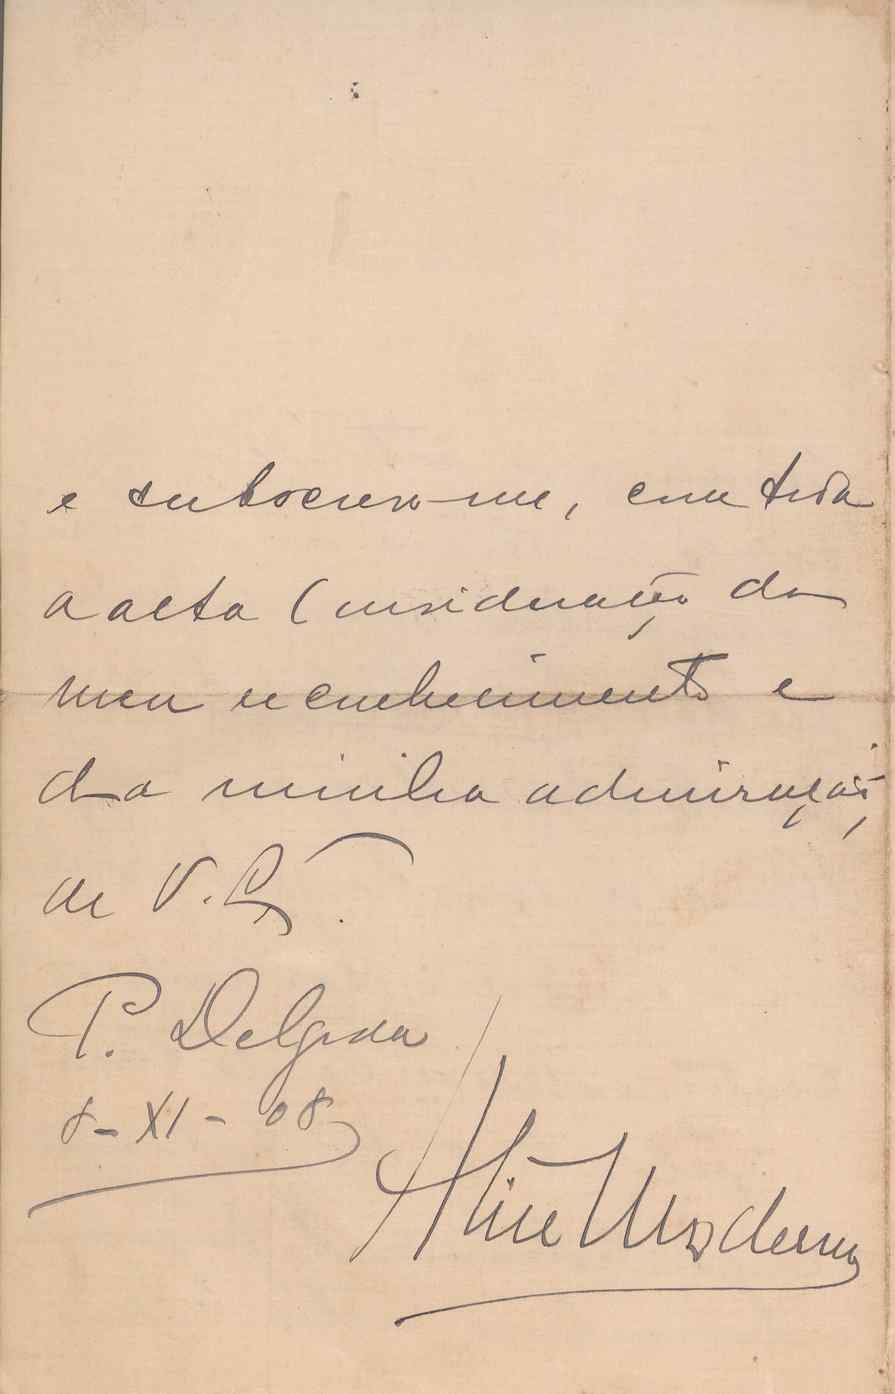 e subscrevo-me, com toda
a alta Consideração do
meu reconhecimento e
da minha admiração,
de V. Ex.
P. Delgada
8-XI-08
Alice Moderno